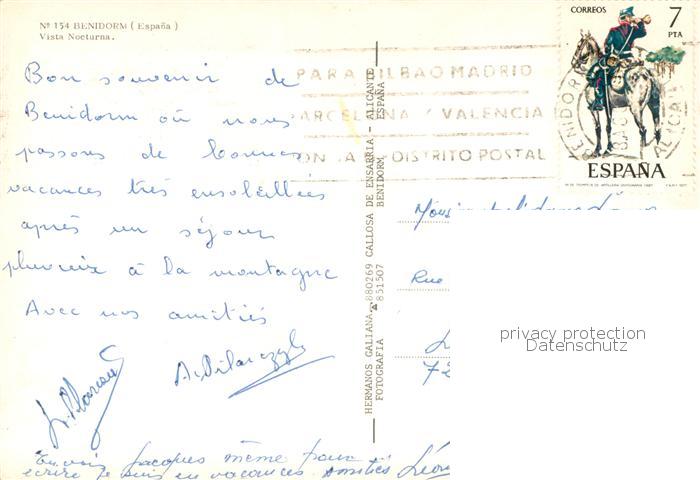 Nº 154 BENIDORM (España)
Vista Nocturna.
Bon souvenir de
Benidorm où nous
passons de bonnes
vacances très ensoleillées
après un séjour
pluvieux à la montagne
Avec nos amitiés
Tu vois Jacques même pour
écrire je suis en vacances. amitiés Léon
HERMANOS GALIANA.-880269 CALLOSA DE ENSARRIA - ALICANTE
FOTOGRAFIA 851507 BENIDORM ESPAÑA
CORREOS 7
PTA
ESPAÑA
PARA BILBAO MADRID
BARCELONA Y VALENCIA
DISTRITO POSTAL
BENIDORM
Rue
privacy protection
Datenschutz